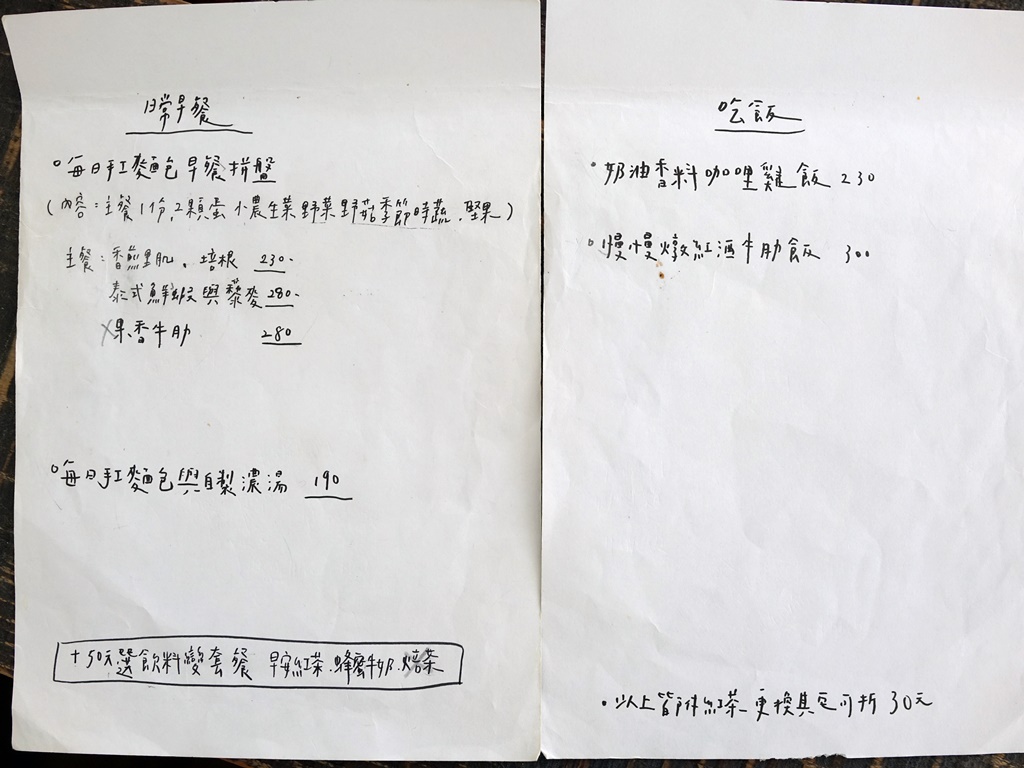 日常早餐
。每日手工麵包早餐拼盤
(內容：主餐1份,2顆蛋 小農生菜 野菜 野菇 季節時蔬、堅果)
主餐：香煎里肌、培根 230-
泰式鮮蝦與藜麥 280-
X果香牛肋 280
。每日手工麵包與自製濃湯 190
+50元選飲料變套餐 早安紅茶.蜂蜜牛奶.焙茶
吃飯
。奶油香料咖哩雞飯 230
。慢慢燉紅酒牛肋飯 300
。以上皆附紅茶 更換其它可折30元